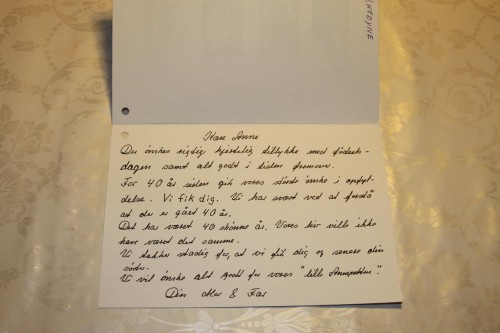 Kære Anne
Du ønskes rigtig hjertelig tillykke med fødsels-
dagen samt alt godt i tiden fremover.
For 40 år siden gik vores største ønske i opfyl-
delse. Vi fik dig. Vi har svært ved at forstå
at du er gået 40 år.
Det har været 40 skønne år. Vores liv ville ikke
have været det samme.
Vi takker stadig for, at vi fik dig og senere din
søster.
Vi vil ønske alt godt for vores "lille
Din Mor & Far